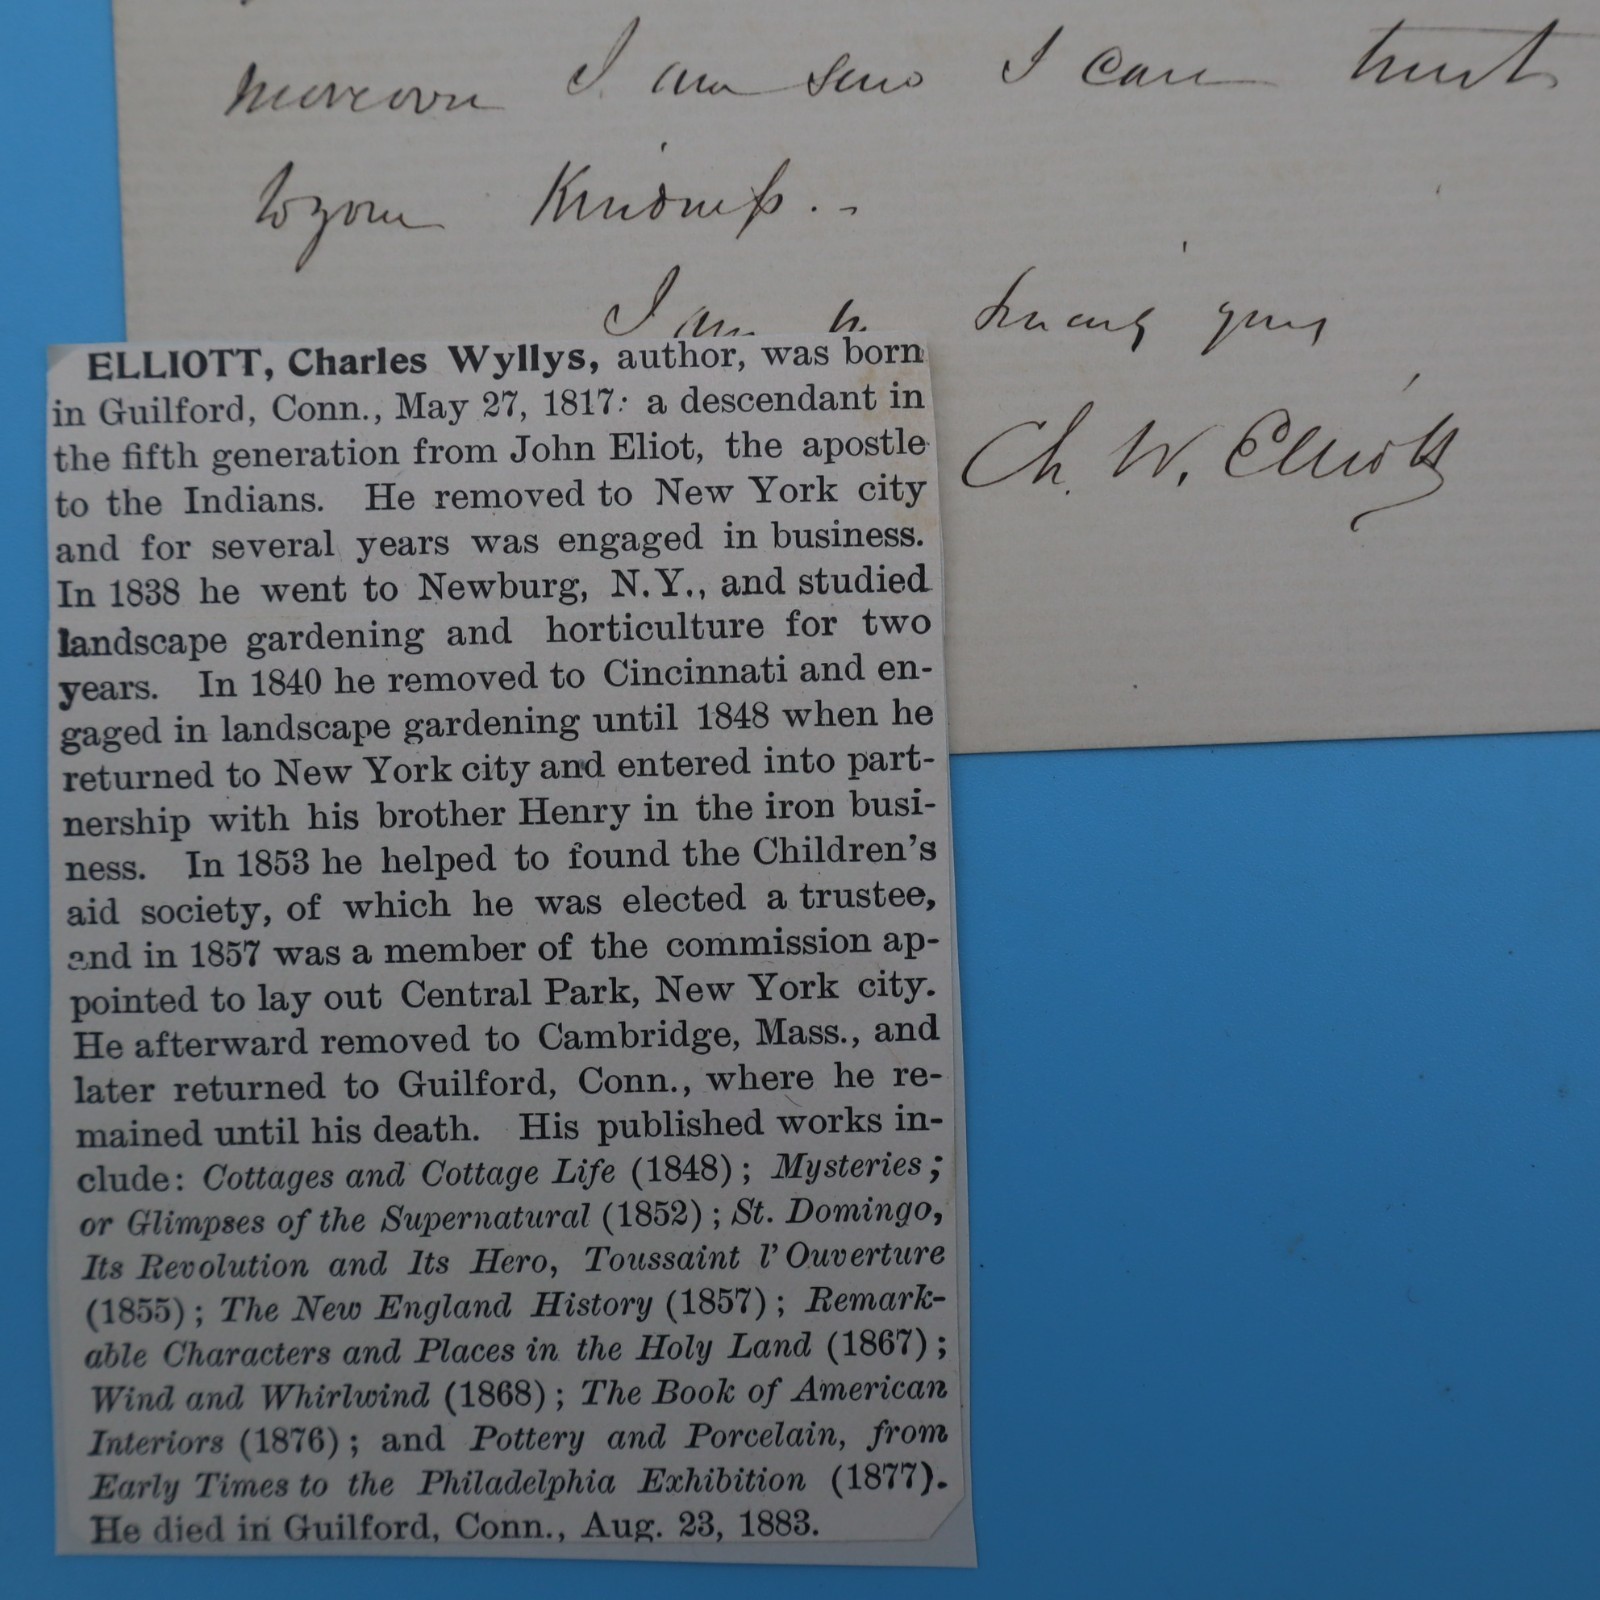 moreover I am sure I can trust
to your Kindness. -
I am
yours
Ch. W. Elliott
ELLIOTT, Charles Wyllys, author, was born
in Guilford, Conn., May 27, 1817: a descendant in
the fifth generation from John Eliot, the apostle
to the Indians. He removed to New York city
and for several years was engaged in business.
In 1838 he went to Newburg, N.Y., and studied
landscape gardening and horticulture for two
years. In 1840 he removed to Cincinnati and en-
gaged in landscape gardening until 1848 when he
returned to New York city and entered into part-
nership with his brother Henry in the iron busi-
ness. In 1853 he helped to found the Children's
aid society, of which he was elected a trustee,
and in 1857 was a member of the commission ap-
pointed to lay out Central Park, New York city.
He afterward removed to Cambridge, Mass., and
later returned to Guilford, Conn., where he re-
mained until his death. His published works in-
clude: Cottages and Cottage Life (1848); Mysteries;
or Glimpses of the Supernatural (1852); St. Domingo,
Its Revolution and Its Hero, Toussaint l'Ouverture
(1855); The New England History (1857); Remark-
able Characters and Places in the Holy Land (1867);
Wind and Whirlwind (1868); The Book of American
Interiors (1876); and Pottery and Porcelain, from
Early Times to the Philadelphia Exhibition (1877).
He died in Guilford, Conn., Aug. 23, 1883.